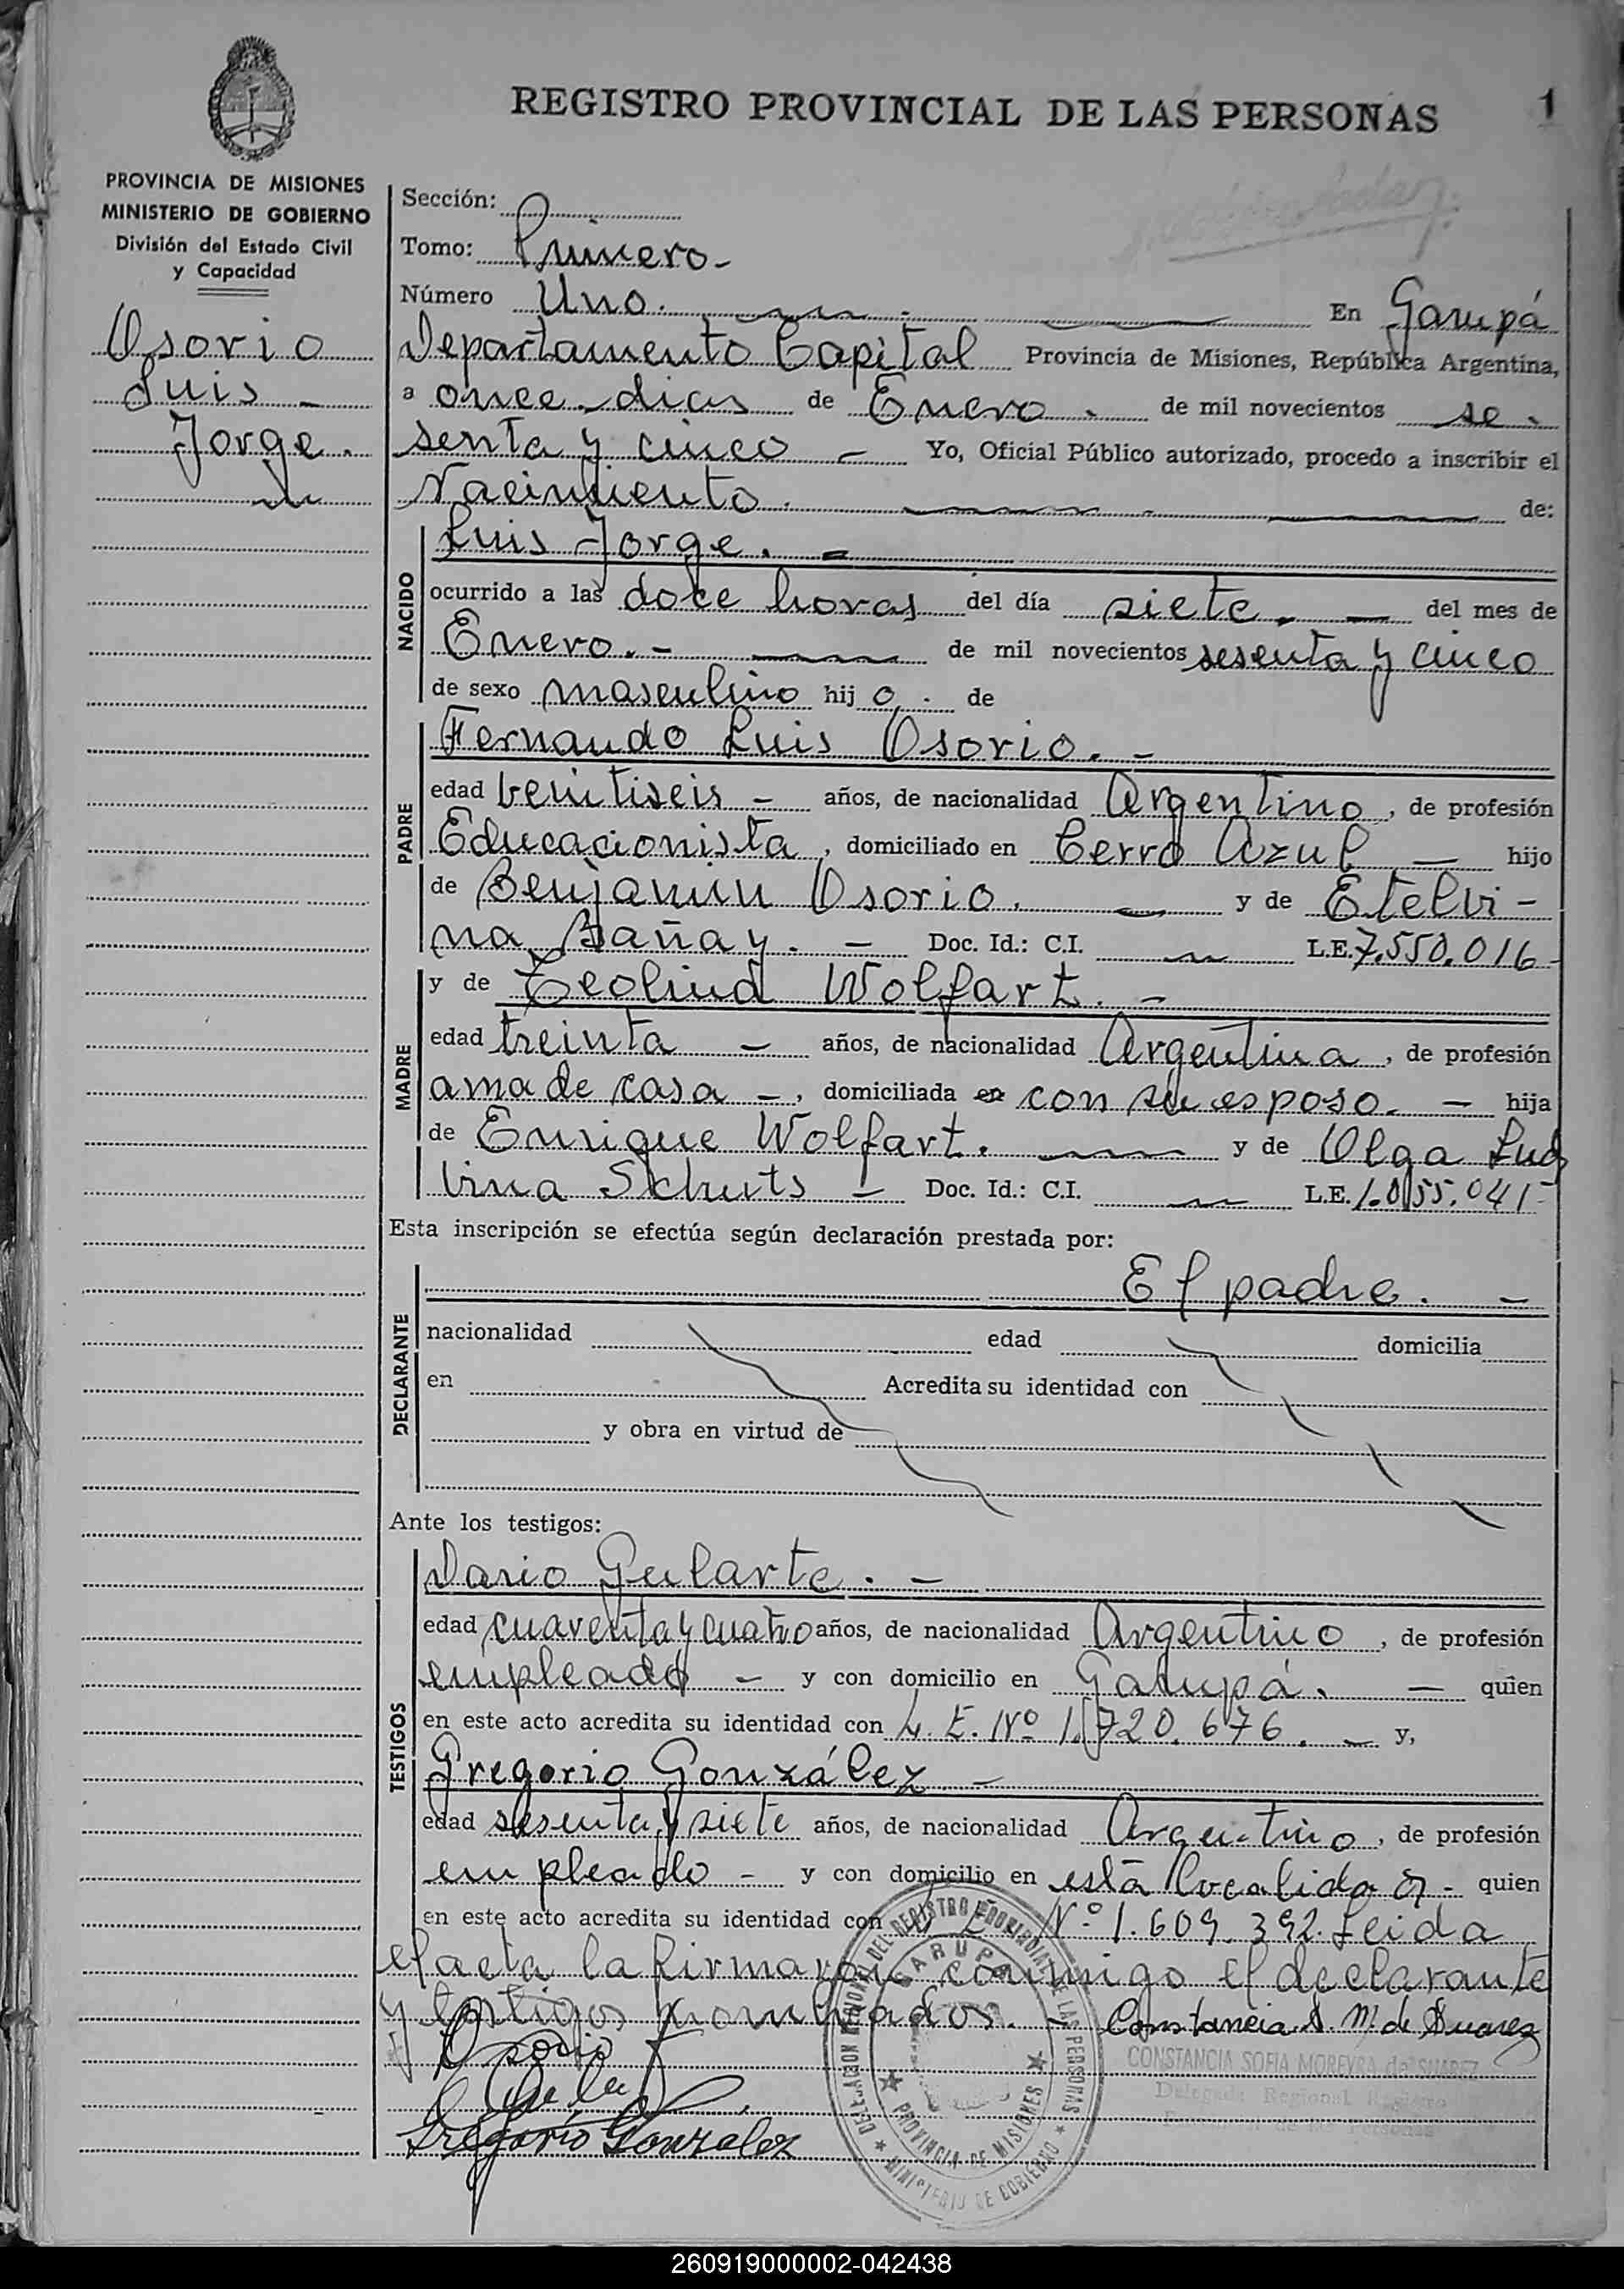 REGISTRO PROVINCIAL DE LAS PERSONAS 1
PROVINCIA DE MISIONES
MINISTERIO DE GOBIERNO
División del Estado Civil
y Capacidad
Osorio
Luis -
Jorge.
Sección:
Tomo: Primero-
Número Uno. En Garupá
Departamento Capital Provincia de Misiones, República Argentina,
a once dias de Enero. de mil novecientos se-
senta y cinco - Yo, Oficial Público autorizado, procedo a inscribir el
Nacimiento. de:
NACIDO
Luis Jorge. -
ocurrido a las doce horas del día siete. - del mes de
Enero. - de mil novecientos sesenta y cinco
de sexo masculino hijo. de
PADRE
Fernando Luis Osorio. -
edad beintiseis - años, de nacionalidad Argentino, de profesión
Educacionista, domiciliado en Cerro Azul - hijo
de Benjamin Osorio. - y de Etelvi-
na Bañay. - Doc. Id.: C.I. L.E. 7.550.016-
MADRE
y de Teolind Wolfart. -
edad treinta - años, de nacionalidad Argentina, de profesión
ama de casa -, domiciliada en con su esposo. - hija
de Enrique Wolfart. y de Olga
Schuts - Doc. Id.: C.I. L.E.
Esta inscripción se efectúa según declaración prestada por:
DECLARANTE
El padre. -
nacionalidad edad domicilia
en Acredita su identidad con
y obra en virtud de
Ante los testigos:
TESTIGOS
Dario Gularte. -
edad cuarenta y cuatro años, de nacionalidad Argentino, de profesión
empleado - y con domicilio en Garupá. - quien
en este acto acredita su identidad con L. E. Nº 1.720.676. - y,
Gregorio González -
edad sesenta y siete años, de nacionalidad Argentino, de profesión
empleado - y con domicilio en esta localidad - quien
en este acto acredita su identidad con L. E. Nº 1.609.392. Leida
el acta la firmaron conmigo el declarante
y testigos nombrados. - Constancia S. M. de Suarez
CONSTANCIA SOFIA MOREYRA de SUAREZ
Delegada Regional Registro
Osorio
Gregorio González
GARUPA
PROVINCIA DE MISIONES
MINISTERIO DE GOBIERNO
260919000002-042438